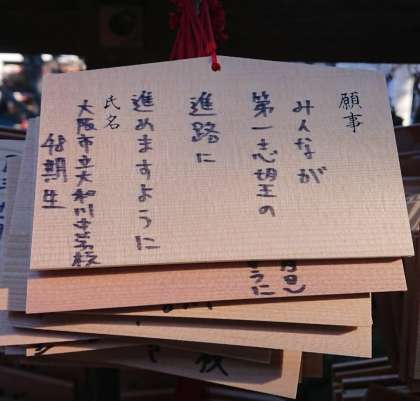 願事
みんなが
第一志望の
進路に
進めますように
氏名
大阪市立大和川中学校
48期生